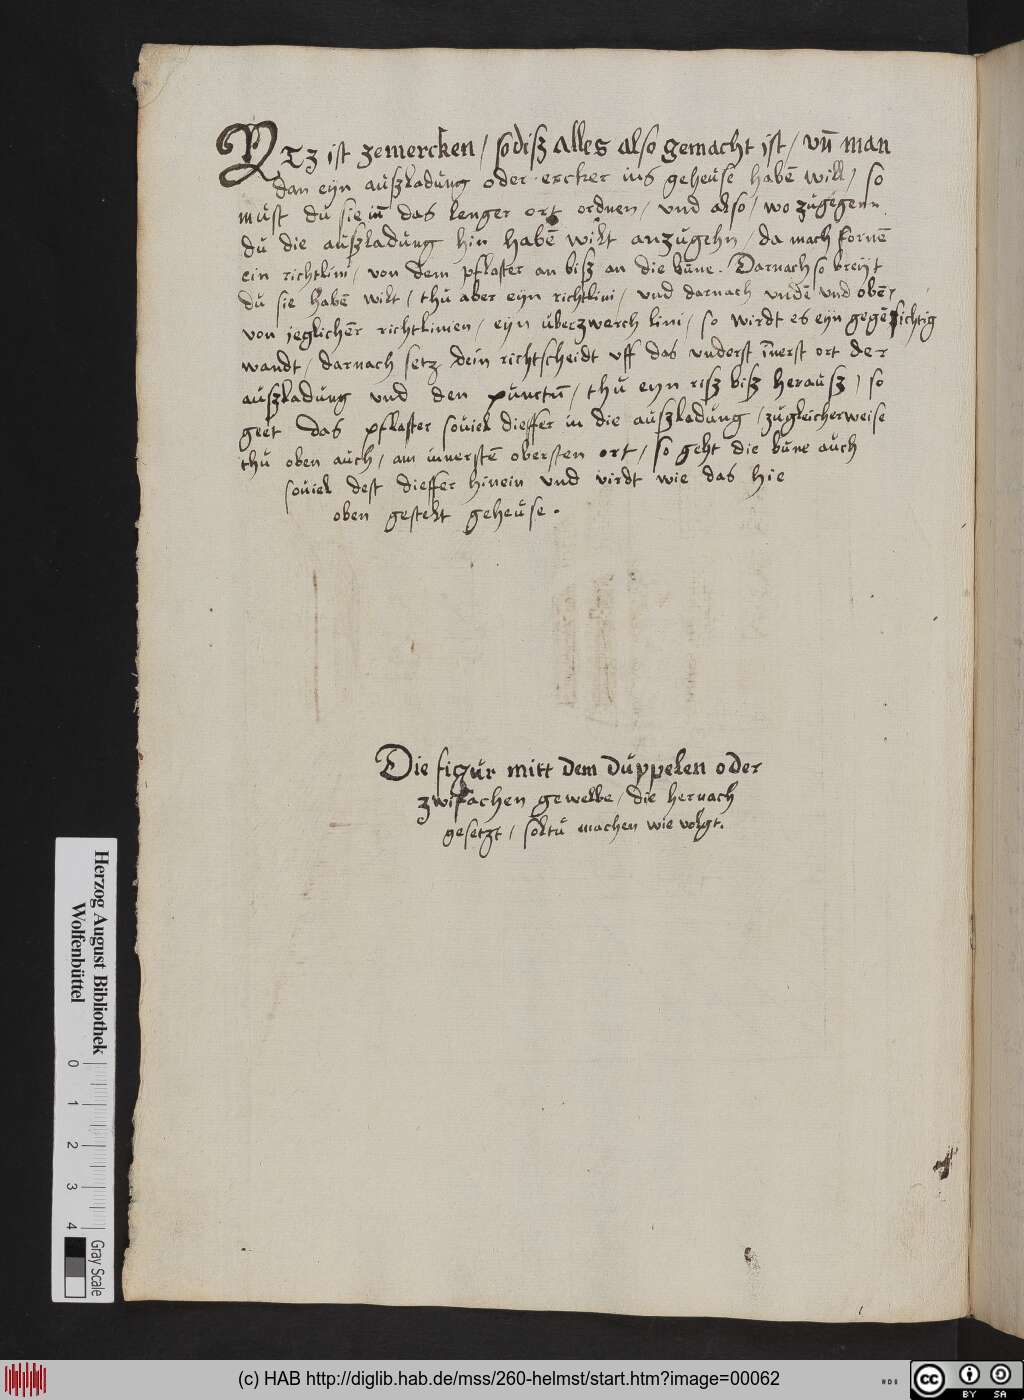 YTz ist zemercken / so diß alles also gemacht ist / vn̄ man
dan eyn außladung oder ercker ins geheuse habē will / so
must du sie in̄ das lenger ort ordnen / vnd also / wo zugegenn
du die außladung hin habē wilt anzugehn / da mach fornē
ein richtlini / von dem pflaster an biß an die bune. Darnach so breyt
du sie habē wilt / thu aber eyn richtlini / vnd darnach vndē vnd oben
von jeglichēr richtlinien / eyn überzwerch lini / so wirdt es eyn gegēsichtig
wandt / darnach setz dein richtscheidt vff das vnderst in̄erst ort der
außladung vnd den punctū / thu eyn riß biß herauß / so
geet das pflaster souiel dieffer in die außladung / zugleicherweise
thu oben auch / am innerstē obersten ort / so geht die bune auch
souiel dest dieffer hinein vnd wirdt wie das hie
oben gestelt geheuse.
Die figur mitt dem duppelen oder
zwifachen gewelbe / die hernach
gesetzt / soltu machen wie volgt.
Herzog August Bibliothek
Wolfenbüttel
0 1 2 3 4
Gray Scale
(c) HAB http://diglib.hab.de/mss/260-helmst/start.htm?image=00062
cc BY SA